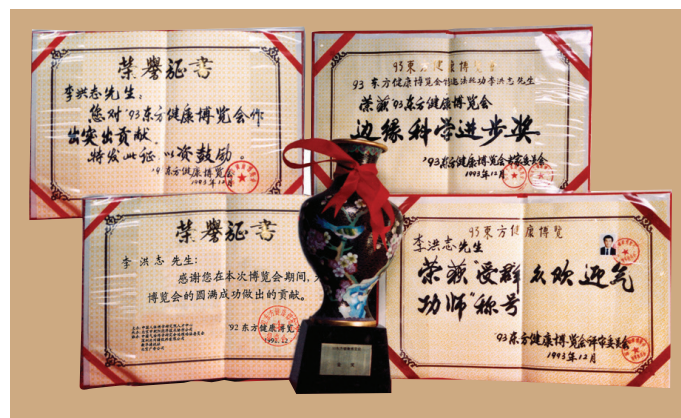 荣誉证书
李洪志先生:
您对'93东方健康博览会作
出突出贡献。
特发此证 以资鼓励。
东方健康博览会
1993年12月
93東方健康博览会
李洪志先生
荣获'93东方健康博览会
边缘科学进步奖
'93东方健康博览会专家委员会
1993年12月
荣誉证书
李洪志先生:
感谢您在本次博览会期间,
博览会的圆满成功做出的贡献。
'92东方健康博览会
1992.12
93東方健康博览
李洪志先生
荣获"受群众欢迎气
功师"称号
'93东方健康博览会评审委员会
1993年12月